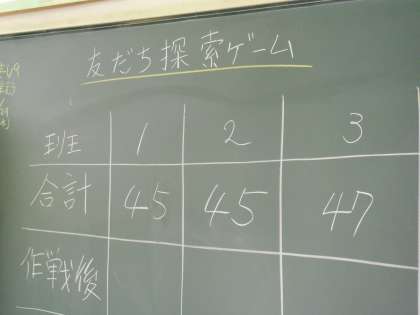 友だち探索ゲーム
班 1 2 3
合計 45 45 47
作戦後